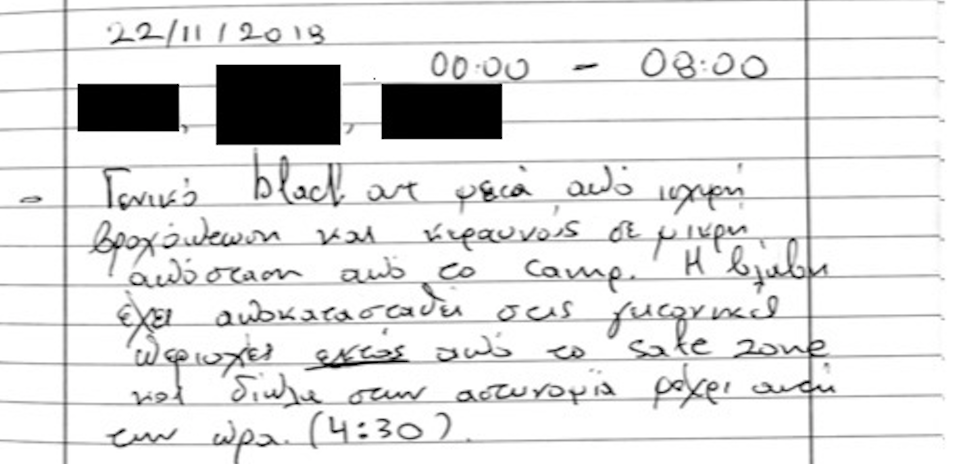 22/11/2018
00:00 - 08:00
- Γενικό black out μετά από ισχυρή
βροχόπτωση και κεραυνούς σε μικρή
απόσταση από το camp. Η βλάβη
έχει αποκατασταθεί στις γειτονικές
περιοχές εκτός από το safe zone
και δίπλα στην αστυνομία μέχρι αυτή
την ώρα. (4:30).